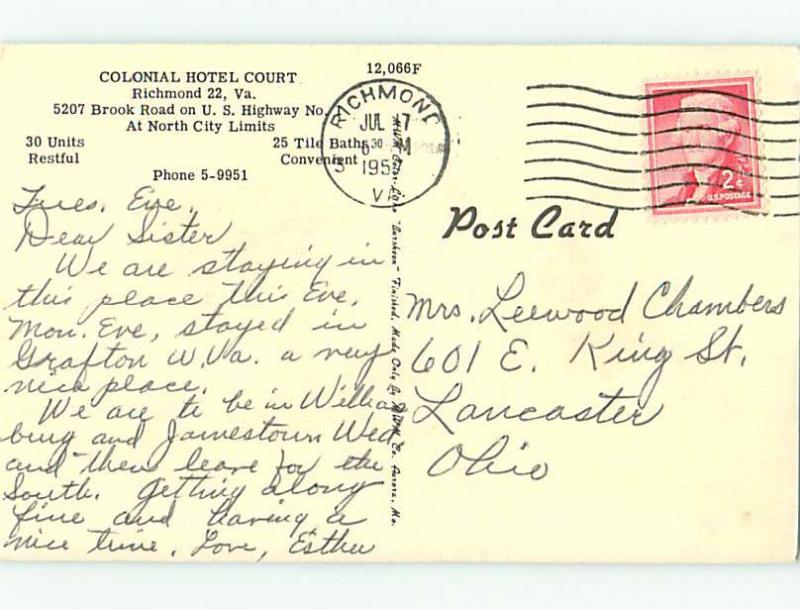 12,066F
COLONIAL HOTEL COURT
Richmond 22, Va.
5207 Brook Road on U. S. Highway No.
At North City Limits
30 Units
25 Tile Baths
Restful
Convenient
Phone 5-9951
RICHMOND
JUL 7
30
M
195
VA
2¢
U.S. POSTAGE
Post Card
Tues. Eve,
Dear Sister
We are staying in
this place this Eve.
Mon. Eve, stayed in
Grafton W. Va. a very
nice place.
We are to be in William
burg and Jamestown Wed
and then leave for the
South. Getting along
fine and having a
nice time. Love, Esther
"Curteen" Finished, Made Only By MWM Co. Aurora, Mo.
Mrs. Leewood Chambers
601 E. King St.
Lancaster
Ohio